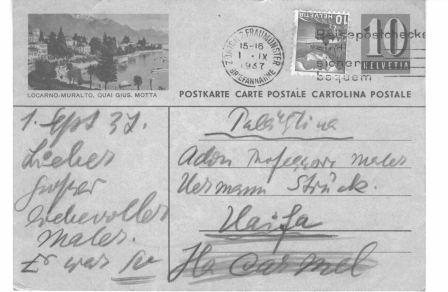 ZÜRICH 2 FRAUMÜNSTER
15-16
1·IX
1937
BRIEFANNAHME
HELVETIA
10
Reisepostchecks
sind
bequem
10
HELVETIA
LOCARNO-MURALTO, QUAI GIUS. MOTTA
POSTKARTE CARTE POSTALE CARTOLINA POSTALE
1. Sept 37.
Lieber
großer
liebevoller
Maler.
Er war
Palästina
Adon Professor Maler
Hermann Struck.
Haifa
Har Carmel